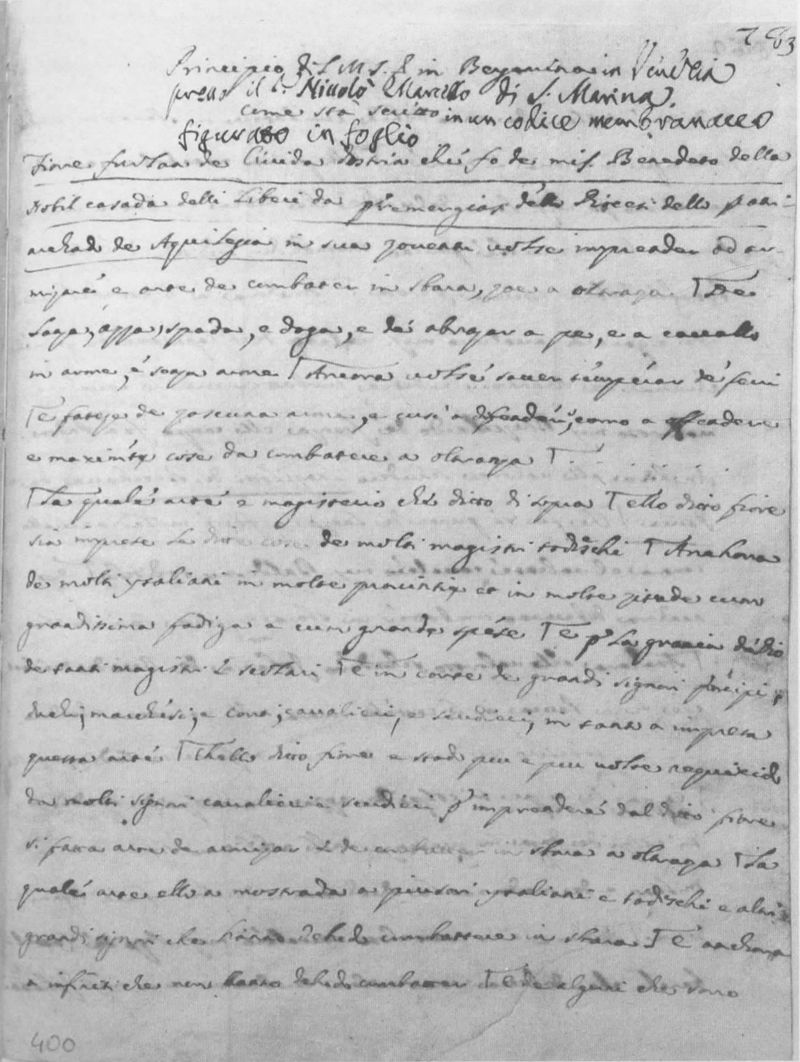 783
Principio di L M S. E in Bergamina in Venezia
presso il S.r Nicolò Marcello di S. Marina,
come stà scritto in un codice membranaceo
figurato in foglio
Fiore furlan de Cividà Dostria che fo de mis. Benedeto della
Nobil casada delli Liberi da premergiax dello Diocesi dello patri-
archado de Aquilegia in sua zoventù volse imprender ad ar-
mizare e arte de combater in sbara, zoe a oltranza T De
lanza, azza, spada, e daga, e de abrazar a pe, e a cavallo
in arme, e senza arme T Ancora volse saver tempere de feri
T e fateze de zascuna arma, e cusì a defendere, como a offendere
e maximatx cose da combatere a oltranza T
T La quale arte e magisterio che ditto di sopra T ello ditto fiore
sia imprese La ditte cose de molti magistri todeschi T Anchora
de molti ytaliani in molte provintix et in molte zitade cum
grandissima fadiga e cum grandx spese T e p La gracia de dio
de tanti magistri e scolari T e in corte de grandi signori principi,
duchi, marchesi, e conti, cavalieri, e scudieri, in tanto a impresa
questa arte T Chello dito fiore e stado piu e piu volte requirido
da molti signori cavalieri e scudieri p imprendere dal ditto fiore
si fatta arte de armizar e de combatter in sbara a oltranza T La
quale arte ello a mostrada a piusori ytaliani e todeschi e altri
grandi signori che hanno debudo combattere in sbara T E anchora
a infiniti che non hanno debudo combatter T e de alguni che sono
400